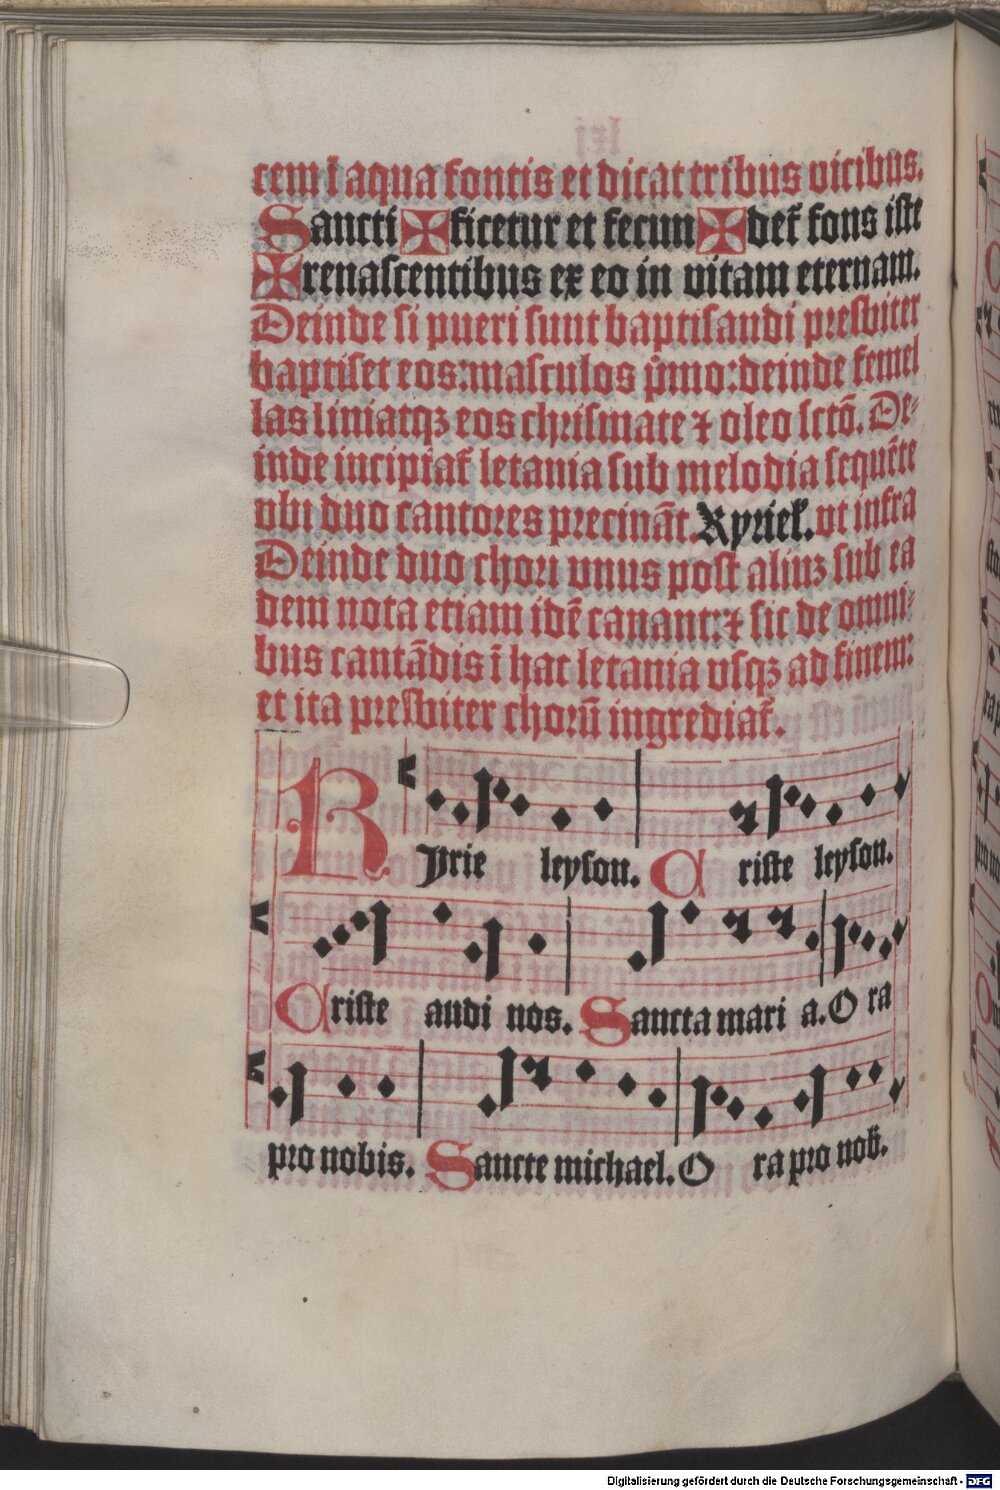 cem ī aqua fontis et dicat tribus vicibus.
Sancti ✠ ficetur et fecun ✠ det᷑ fons iste
✠ renascentibus ex eo in vitam eternam.
Deinde si pueri sunt baptisandi presbiter
baptiset eos: masculos p̄mo: deinde femel
las liniatqꝫ eos chrismate ⁊ oleo sctō. De⸗
inde incipiat᷑ letania sub melodia sequēte
vbi duo cantores precināt Kyriel᷑. vt infra
Deinde duo chori vnus post aliuꝫ sub ea
dem nota etiam idē canant: ⁊ sic de omni⸗
bus cantādis ī hac letania vsqꝫ ad finem:
et ita presbiter chorū ingrediat᷑.
Kyrie leyson. Criste leyson.
Criste audi nos. Sancta mari a. O ra
pro nobis. Sancte michael. O ra pro nob̄.
Digitalisierung gefördert durch die Deutsche Forschungsgemeinschaft - DFG